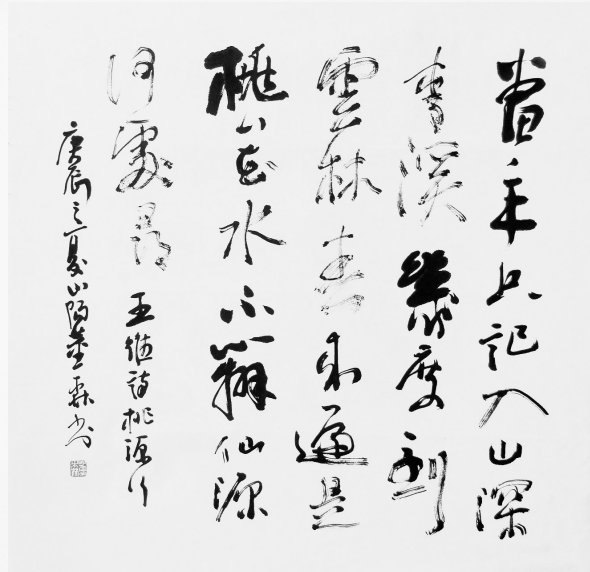 當年只記入山深
青溪幾度到
雲林春來遍是
桃花水不辨仙源
何處尋 王維詩桃源行
庚辰之夏山陽森書